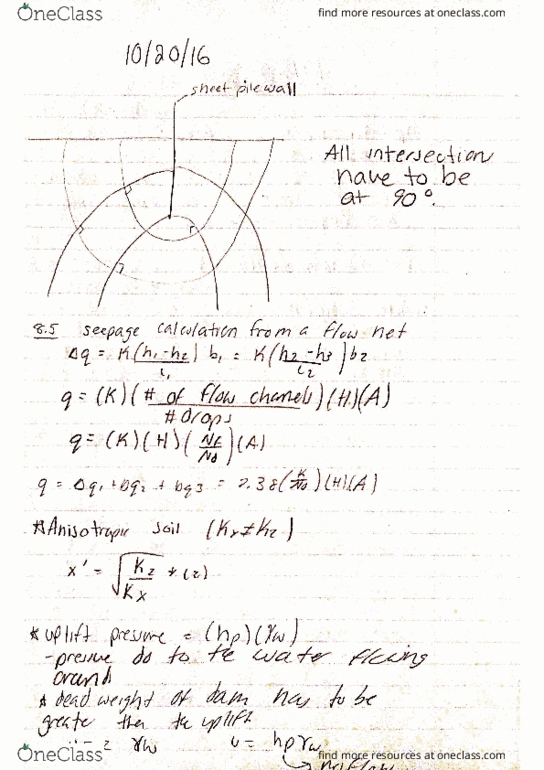 OneClass
find more resources at oneclass.com
10/20/16
sheet pile wall
All intersection
have to be
at 90°.
8.5 seepage calculation from a flow net
Δq = K(h₁-h₂) b₁ = K(h₂-h₃) b₂
l₁ l₂
q = (K)(# of flow channels)(H)(A)
# drops
q = (K)(H)(Nf/Nd)(A)
q = Δq₁ + Δq₂ + Δq₃ = 2.38(K/Nd)(H)(A)
*Anisotropic soil (Kx≠Kz)
x' = √(Kz/Kx) * (z)
* uplift pressure = (hp)(γw)
- pressure do to the water flowing
around
* dead weight of dam has to be
greater then the uplift
γw u = hpγw
OneClass
find more resources at oneclass.com